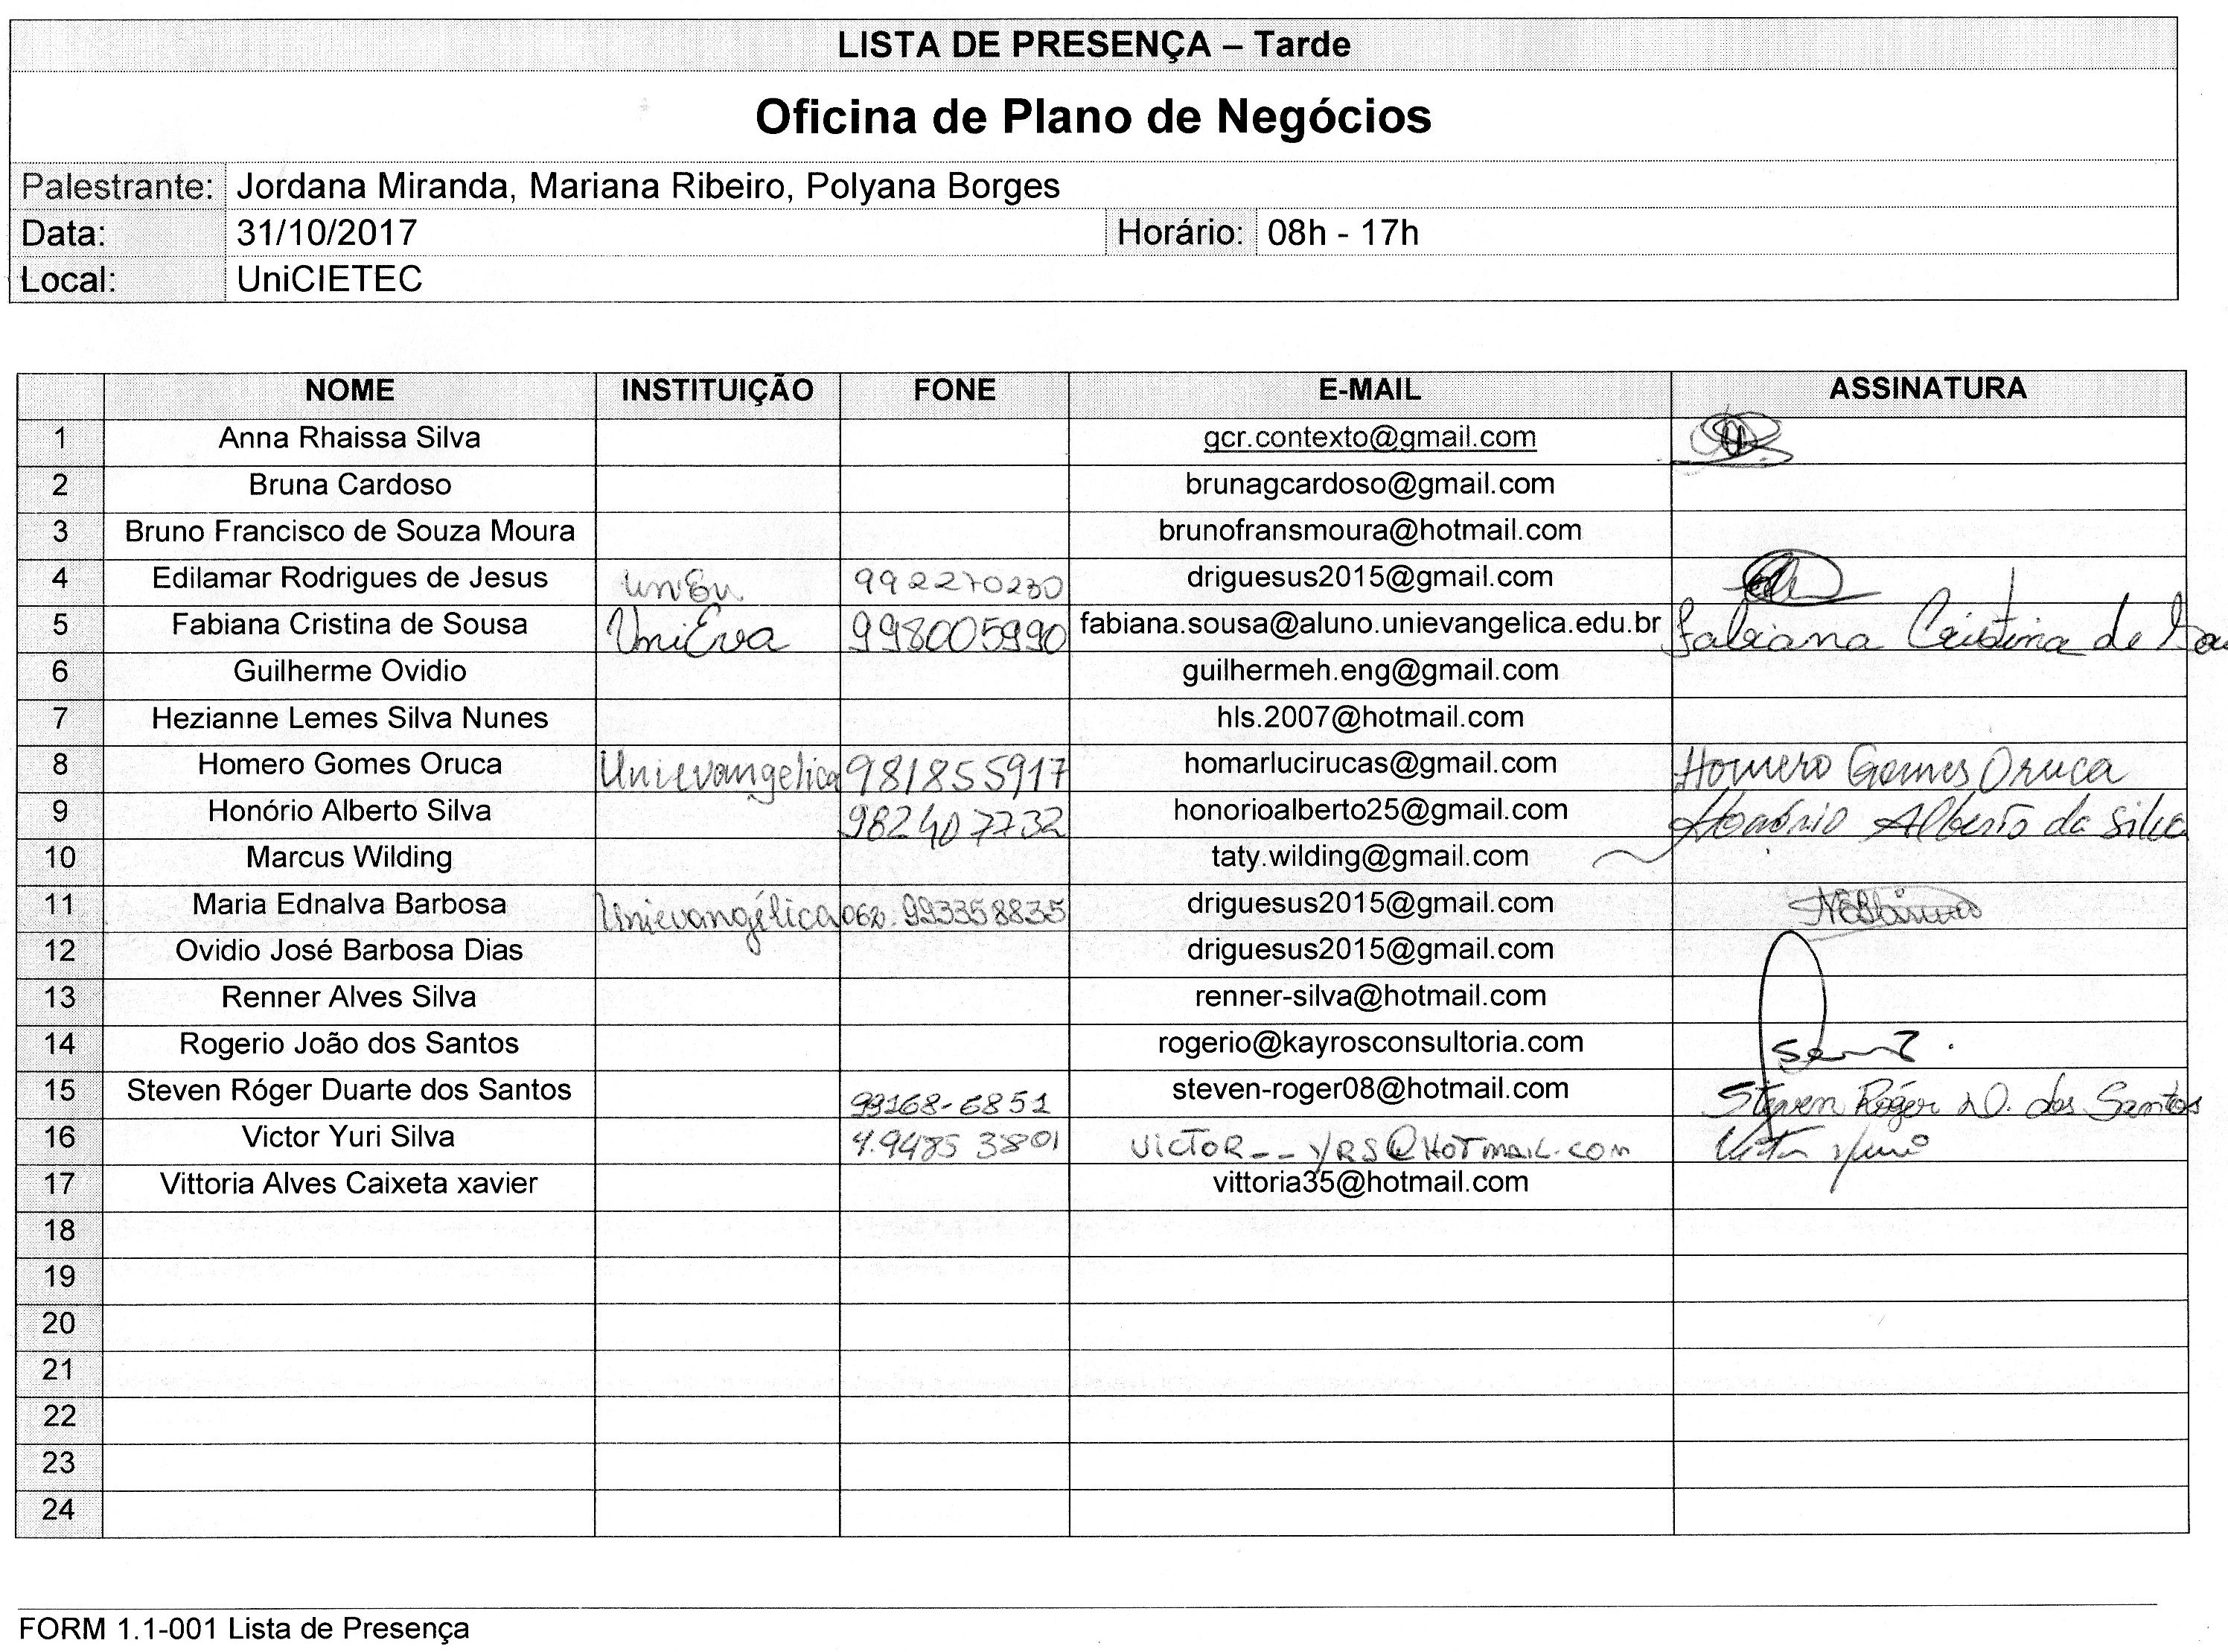 LISTA DE PRESENÇA – Tarde
Oficina de Plano de Negócios
Palestrante: Jordana Miranda, Mariana Ribeiro, Polyana Borges
Data: 31/10/2017 Horário: 08h - 17h
Local: UniCIETEC
NOME INSTITUIÇÃO FONE E-MAIL ASSINATURA
1 Anna Rhaissa Silva gcr.contexto@gmail.com
2 Bruna Cardoso brunagcardoso@gmail.com
3 Bruno Francisco de Souza Moura brunofransmoura@hotmail.com
4 Edilamar Rodrigues de Jesus 992270230 driguesus2015@gmail.com
5 Fabiana Cristina de Sousa UniEva 998005990 fabiana.sousa@aluno.unievangelica.edu.br Fabiana Cristina de Sou
6 Guilherme Ovidio guilhermeh.eng@gmail.com
7 Hezianne Lemes Silva Nunes hls.2007@hotmail.com
8 Homero Gomes Oruca Unievangelica 981855917 homarlucirucas@gmail.com Homero Gomes Oruca
9 Honório Alberto Silva 982407732 honorioalberto25@gmail.com Honório Alberto da Silva
10 Marcus Wilding taty.wilding@gmail.com
11 Maria Ednalva Barbosa Unievangélica 062. 993358835 driguesus2015@gmail.com
12 Ovidio José Barbosa Dias driguesus2015@gmail.com
13 Renner Alves Silva renner-silva@hotmail.com
14 Rogerio João dos Santos rogerio@kayrosconsultoria.com
15 Steven Róger Duarte dos Santos 99168-6851 steven-roger08@hotmail.com Steven Róger D. dos Santos
16 Victor Yuri Silva 9.9485 3801 VICTOR__YRS@HOTMAIL.COM Victor Yuri
17 Vittoria Alves Caixeta xavier vittoria35@hotmail.com
18
19
20
21
22
23
24
FORM 1.1-001 Lista de Presença